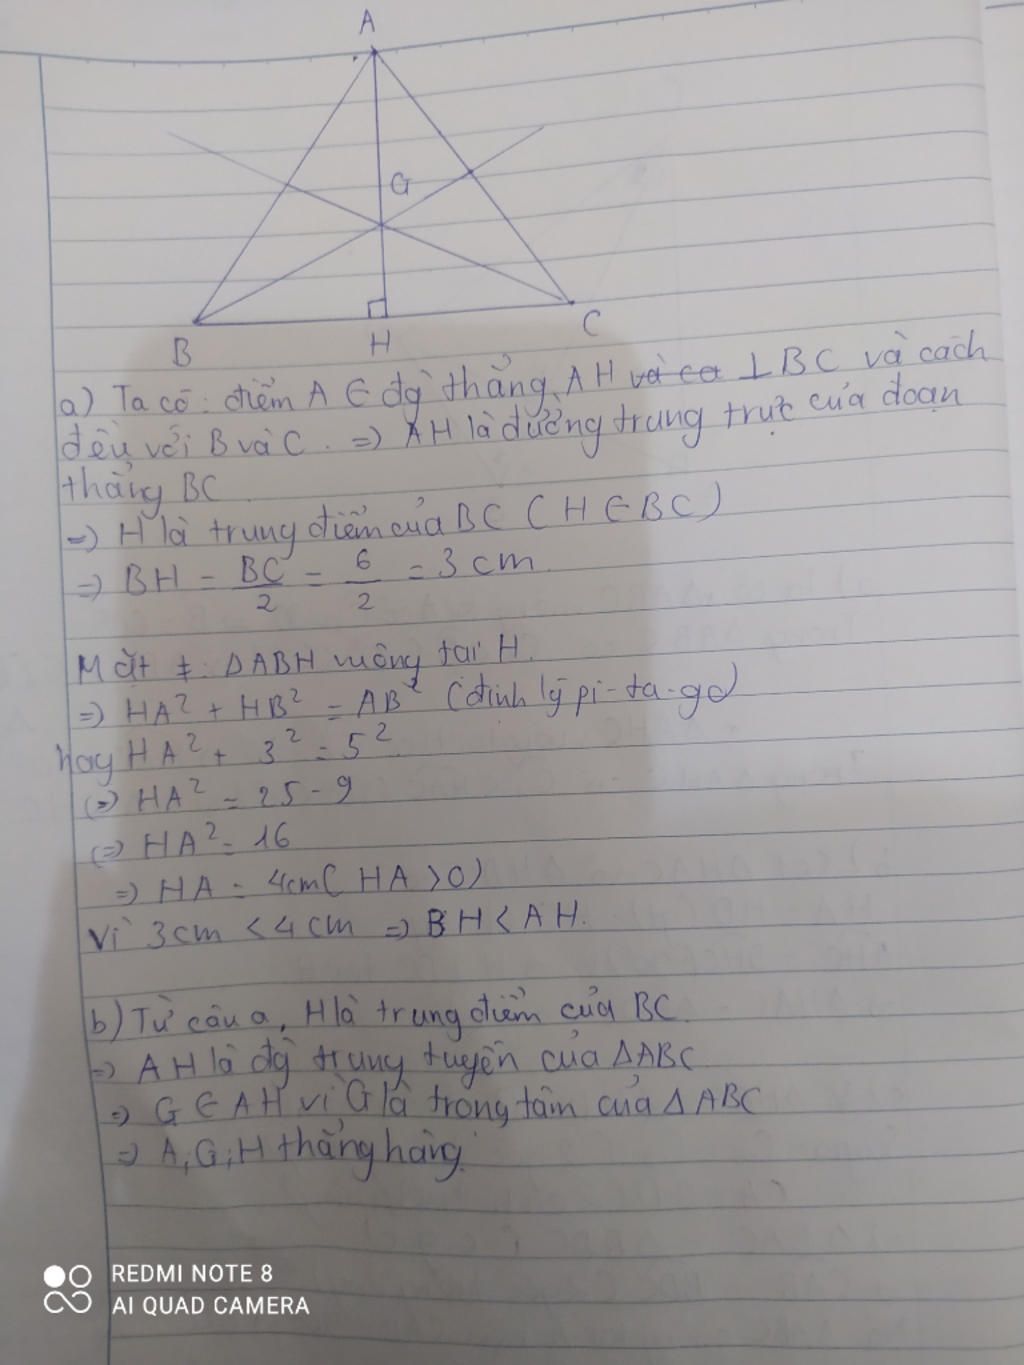 A
G
B
H
C
a) Ta có: điểm A ∈ đg thẳng AH và co ⊥ BC và cách
đều với B và C. => AH là đường trung trực của đoạn
thẳng BC
=> H là trung điểm của BC (H ∈ BC)
=> BH = BC/2 = 6/2 = 3 cm
Mặt ≠: ΔABH vuông tại H.
=> HA² + HB² = AB² (định lý pi-ta-go)
hay HA² + 3² = 5²
(=) HA² = 25 - 9
(=) HA² = 16
=> HA = 4cm (HA > 0)
Vì 3cm < 4cm => BH < AH.
b) Từ câu a, H là trung điểm của BC
=> AH là đg trung tuyến của ΔABC
=> G ∈ AH vì G là trọng tâm của ΔABC
=> A; G; H thẳng hàng.
REDMI NOTE 8
AI QUAD CAMERA